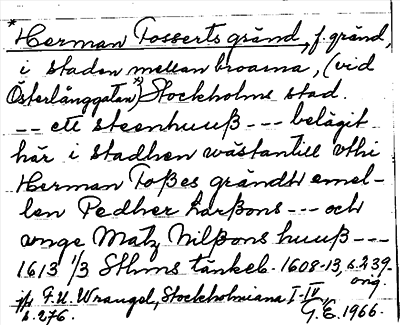 *Herman Fosserts gränd, f. gränd,
i staden mellan broarna, (vid
Österlånggatan*) Stockholms stad.
-- ett steenhuuß --- belägit
här i stadhen wästantill vthi
Herman Foßes grändh emel-
len Pedher Larßons --- och
unge Matz Nilßons huuß ---
1613 1/3 Sthms tänkeb. 1608-13, s. 239.
orig.
jfr F.U. Wrangel, Stockholmiana I-IV,
s. 276. G.E. 1966.